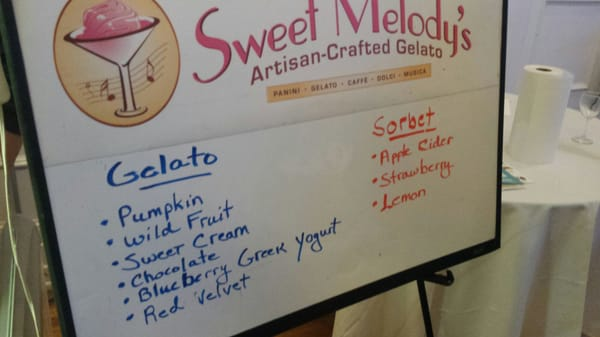 Sweet Melody's
Artisan-Crafted Gelato
PANINI · GELATO · CAFFÈ · DOLCI · MUSICA
Gelato
• Pumpkin
• Wild Fruit
• Sweet Cream
• Chocolate
• Blueberry Greek Yogurt
• Red Velvet
Sorbet
• Apple Cider
• Strawberry
• Lemon